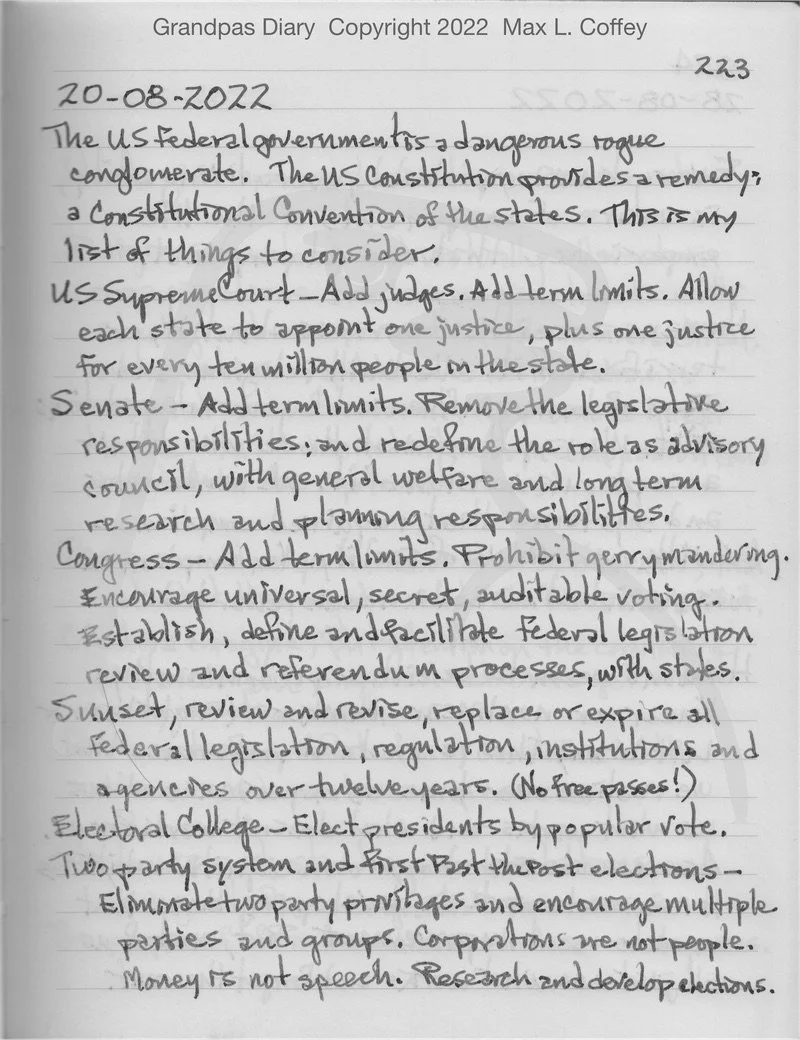 Grandpas Diary Copyright 2022 Max L. Coffey
223
20-08-2022
The US Federal government is a dangerous rogue
conglomerate. The US Constitution provides a remedy;
a Constitutional Convention of the states. This is my
list of things to consider.
US Supreme Court - Add judges. Add term limits. Allow
each state to appoint one justice, plus one justice
for every ten million people in the state.
Senate - Add term limits. Remove the legislative
responsibilities; and redefine the role as advisory
council, with general welfare and long term
research and planning responsibilities.
Congress - Add term limits. Prohibit gerrymandering.
Encourage universal, secret, auditable voting.
Establish, define and facilitate federal legislation
review and referendum processes, with states.
Sunset, review and revise, replace or expire all
federal legislation, regulation, institutions and
agencies over twelve years. (No free passes!)
Electoral College - Elect presidents by popular vote.
Two party system and First Past the Post elections -
Eliminate two party privilages and encourage multiple
parties and groups. Corporations are not people.
Money is not speech. Research and develop elections.